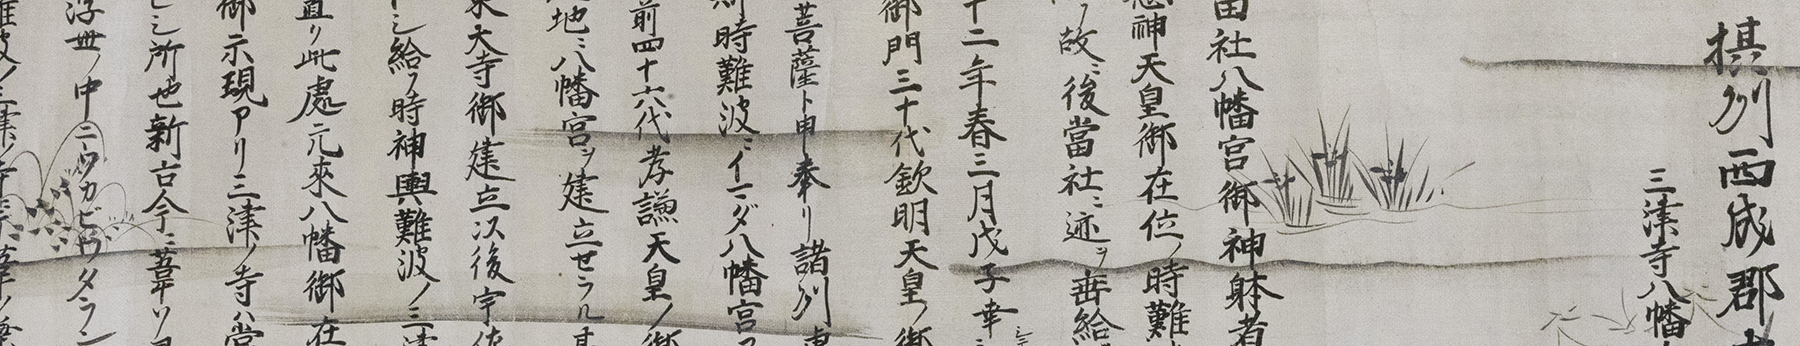 摂州西成郡
三津寺八幡
田社八幡宮御神躰者
應神天皇御在位ノ時難
ノ故ニ後當社ニ迹ヲ垂給
十二年春三月戊子幸
御門三十代欽明天皇ノ御
菩薩ト申奉リ諸州
時難波ニイマダ八幡宮
前四十六代孝謙天皇ノ御
地ニ八幡宮ヲ建立セラル
東大寺御建立以後宇佐
シ給フ時神輿難波ノ三津
直リ此處元來八幡御在
御示現アリ三津ノ寺ハ當
シ所也新古今ニ葦ソ
浮世ノ中ニウカビワタラン
難波ノ三津ノ寺